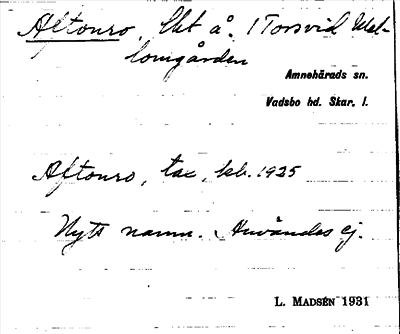 Aftonro, lht å. 1 Torsvid Mel-
lomgården
Amnehärads sn.
Vadsbo hd. Skar. l.
Aftonro, tax, kb. 1925
Nytt namn. Användes ej.
L. MADSÉN 1931